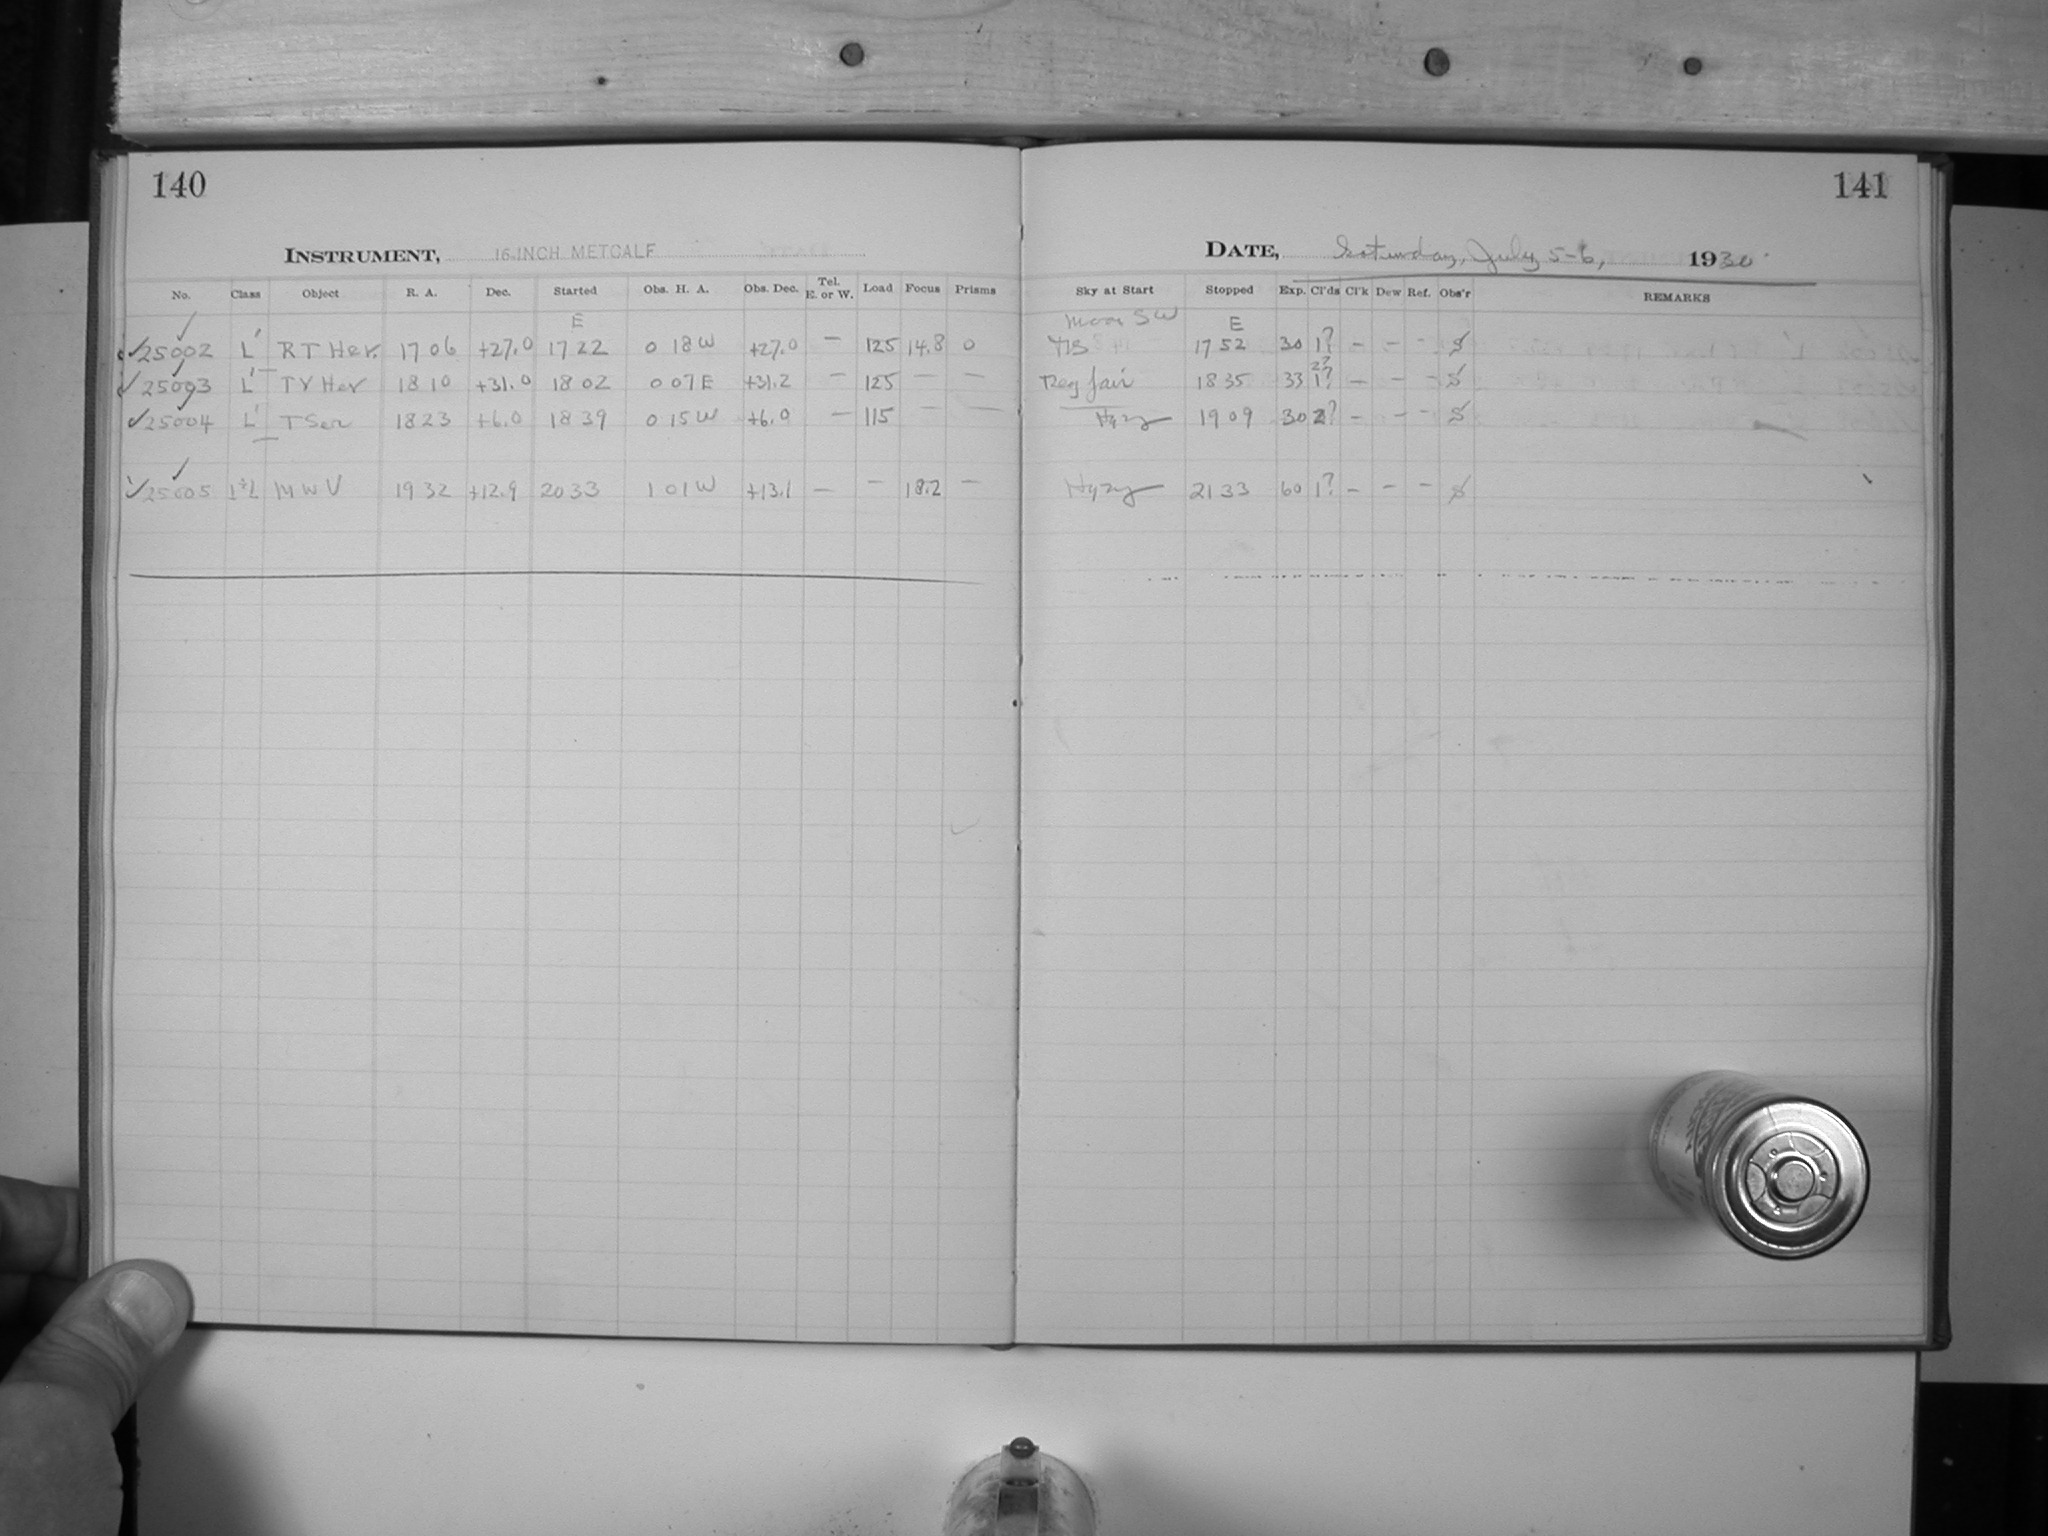 140
INSTRUMENT, 16-INCH METCALF
No. Class Object R. A. Dec. Started Obs. H. A. Obs. Dec. Tel. E. or W. Load Focus Prisms
E
25002 L' RT Her. 17 06 +27.0 17 22 0 18 W +27.0 — 125 14.8 0
25003 L' TV Her 18 10 +31.0 18 02 0 07 E +31.2 — 125 — —
25004 L' T Ser 18 23 +6.0 18 39 0 15 W +6.0 — 115 — —
25005 MWV 19 32 +12.9 20 33 1 01 W +13.1 — — 18.2 —
141
DATE, Saturday, July 5-6, 1930
Sky at Start Stopped Exp. Cl'ds Cl'k Dew Ref. Obs'r REMARKS
Moon SW E
17 52 30 1? — — —
2?
Reg fair 18 35 33 1? — — —
Hazy 19 09 30 2? — — —
Hazy 21 33 60 1? — — —